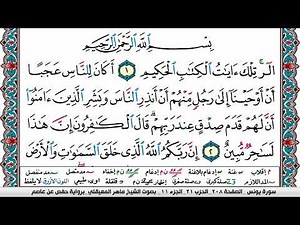 بِسْمِ ٱللَّهِ ٱلرَّحْمَٰنِ ٱلرَّحِيمِ
الٓر ۚ تِلْكَ ءَايَٰتُ ٱلْكِتَٰبِ ٱلْحَكِيمِ ١ أَكَانَ لِلنَّاسِ عَجَبًا
أَنْ أَوْحَيْنَآ إِلَىٰ رَجُلٍ مِّنْهُمْ أَنْ أَنذِرِ ٱلنَّاسَ وَبَشِّرِ ٱلَّذِينَ ءَامَنُوٓا۟
أَنَّ لَهُمْ قَدَمَ صِدْقٍ عِندَ رَبِّهِمْ ۗ قَالَ ٱلْكَٰفِرُونَ إِنَّ هَٰذَا
لَسَٰحِرٌ مُّبِينٌ ٢ إِنَّ رَبَّكُمُ ٱللَّهُ ٱلَّذِى خَلَقَ ٱلسَّمَٰوَٰتِ وَٱلْأَرْضَ
سورة يونس . الصفحة ٢٠٨ . الحزب ٢١ . الجزء ١١ . بصوت الشيخ ماهر المعيقلي . برواية حفص عن عاصم